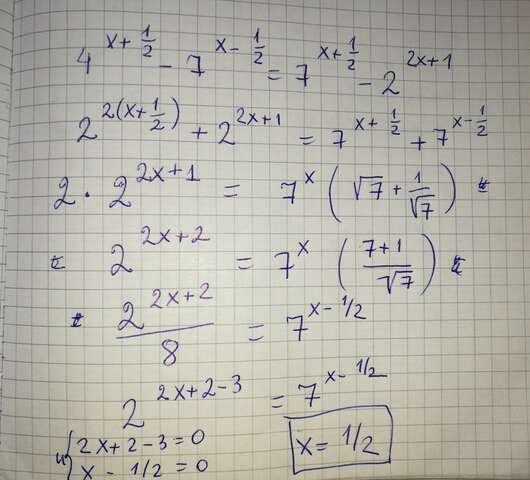 4^{x+\frac{1}{2}} - 7^{x-\frac{1}{2}} = 7^{x+\frac{1}{2}} - 2^{2x+1}
2^{2(x+\frac{1}{2})} + 2^{2x+1} = 7^{x+\frac{1}{2}} + 7^{x-\frac{1}{2}}
2 \cdot 2^{2x+1} = 7^x (\sqrt{7} + \frac{1}{\sqrt{7}})
2^{2x+2} = 7^x (\frac{7+1}{\sqrt{7}})
\frac{2^{2x+2}}{8} = 7^{x-1/2}
2^{2x+2-3} = 7^{x-1/2}
2x+2-3=0
x-1/2=0
x=1/2